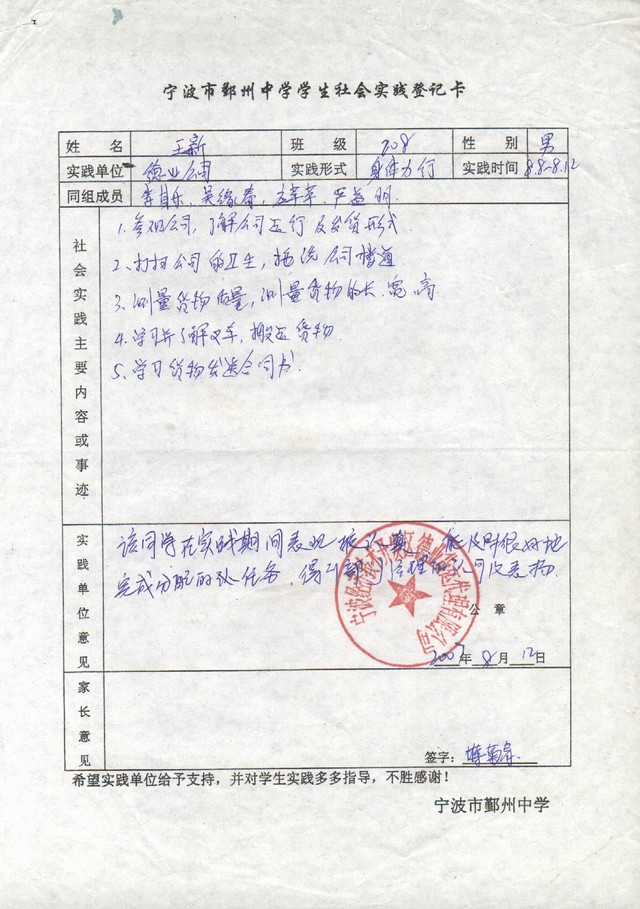 宁波市鄞州中学学生社会实践登记卡
姓 名 王新 班 级 208 性 别 男
实践单位 德业公司 实践形式 身体力行 实践时间 8.8-8.12
同组成员
社会实践主要内容或事迹
1.参观公司,了解公司运行及发货形式
2.打扫公司的卫生,拖洗公司楼道
3.测量货物质量,测量货物的长.宽.高
4.学习并了解叉车,搬运货物.
5.学习货物发送合同书.
实践单位意见
该同学在实践期间表现 能及时很好地
完成分配的 任务,得到部门经理 公司 表扬.
公 章
2007年8月12日
家长意见
签字:
希望实践单位给予支持,并对学生实践多多指导,不胜感谢!
宁波市鄞州中学